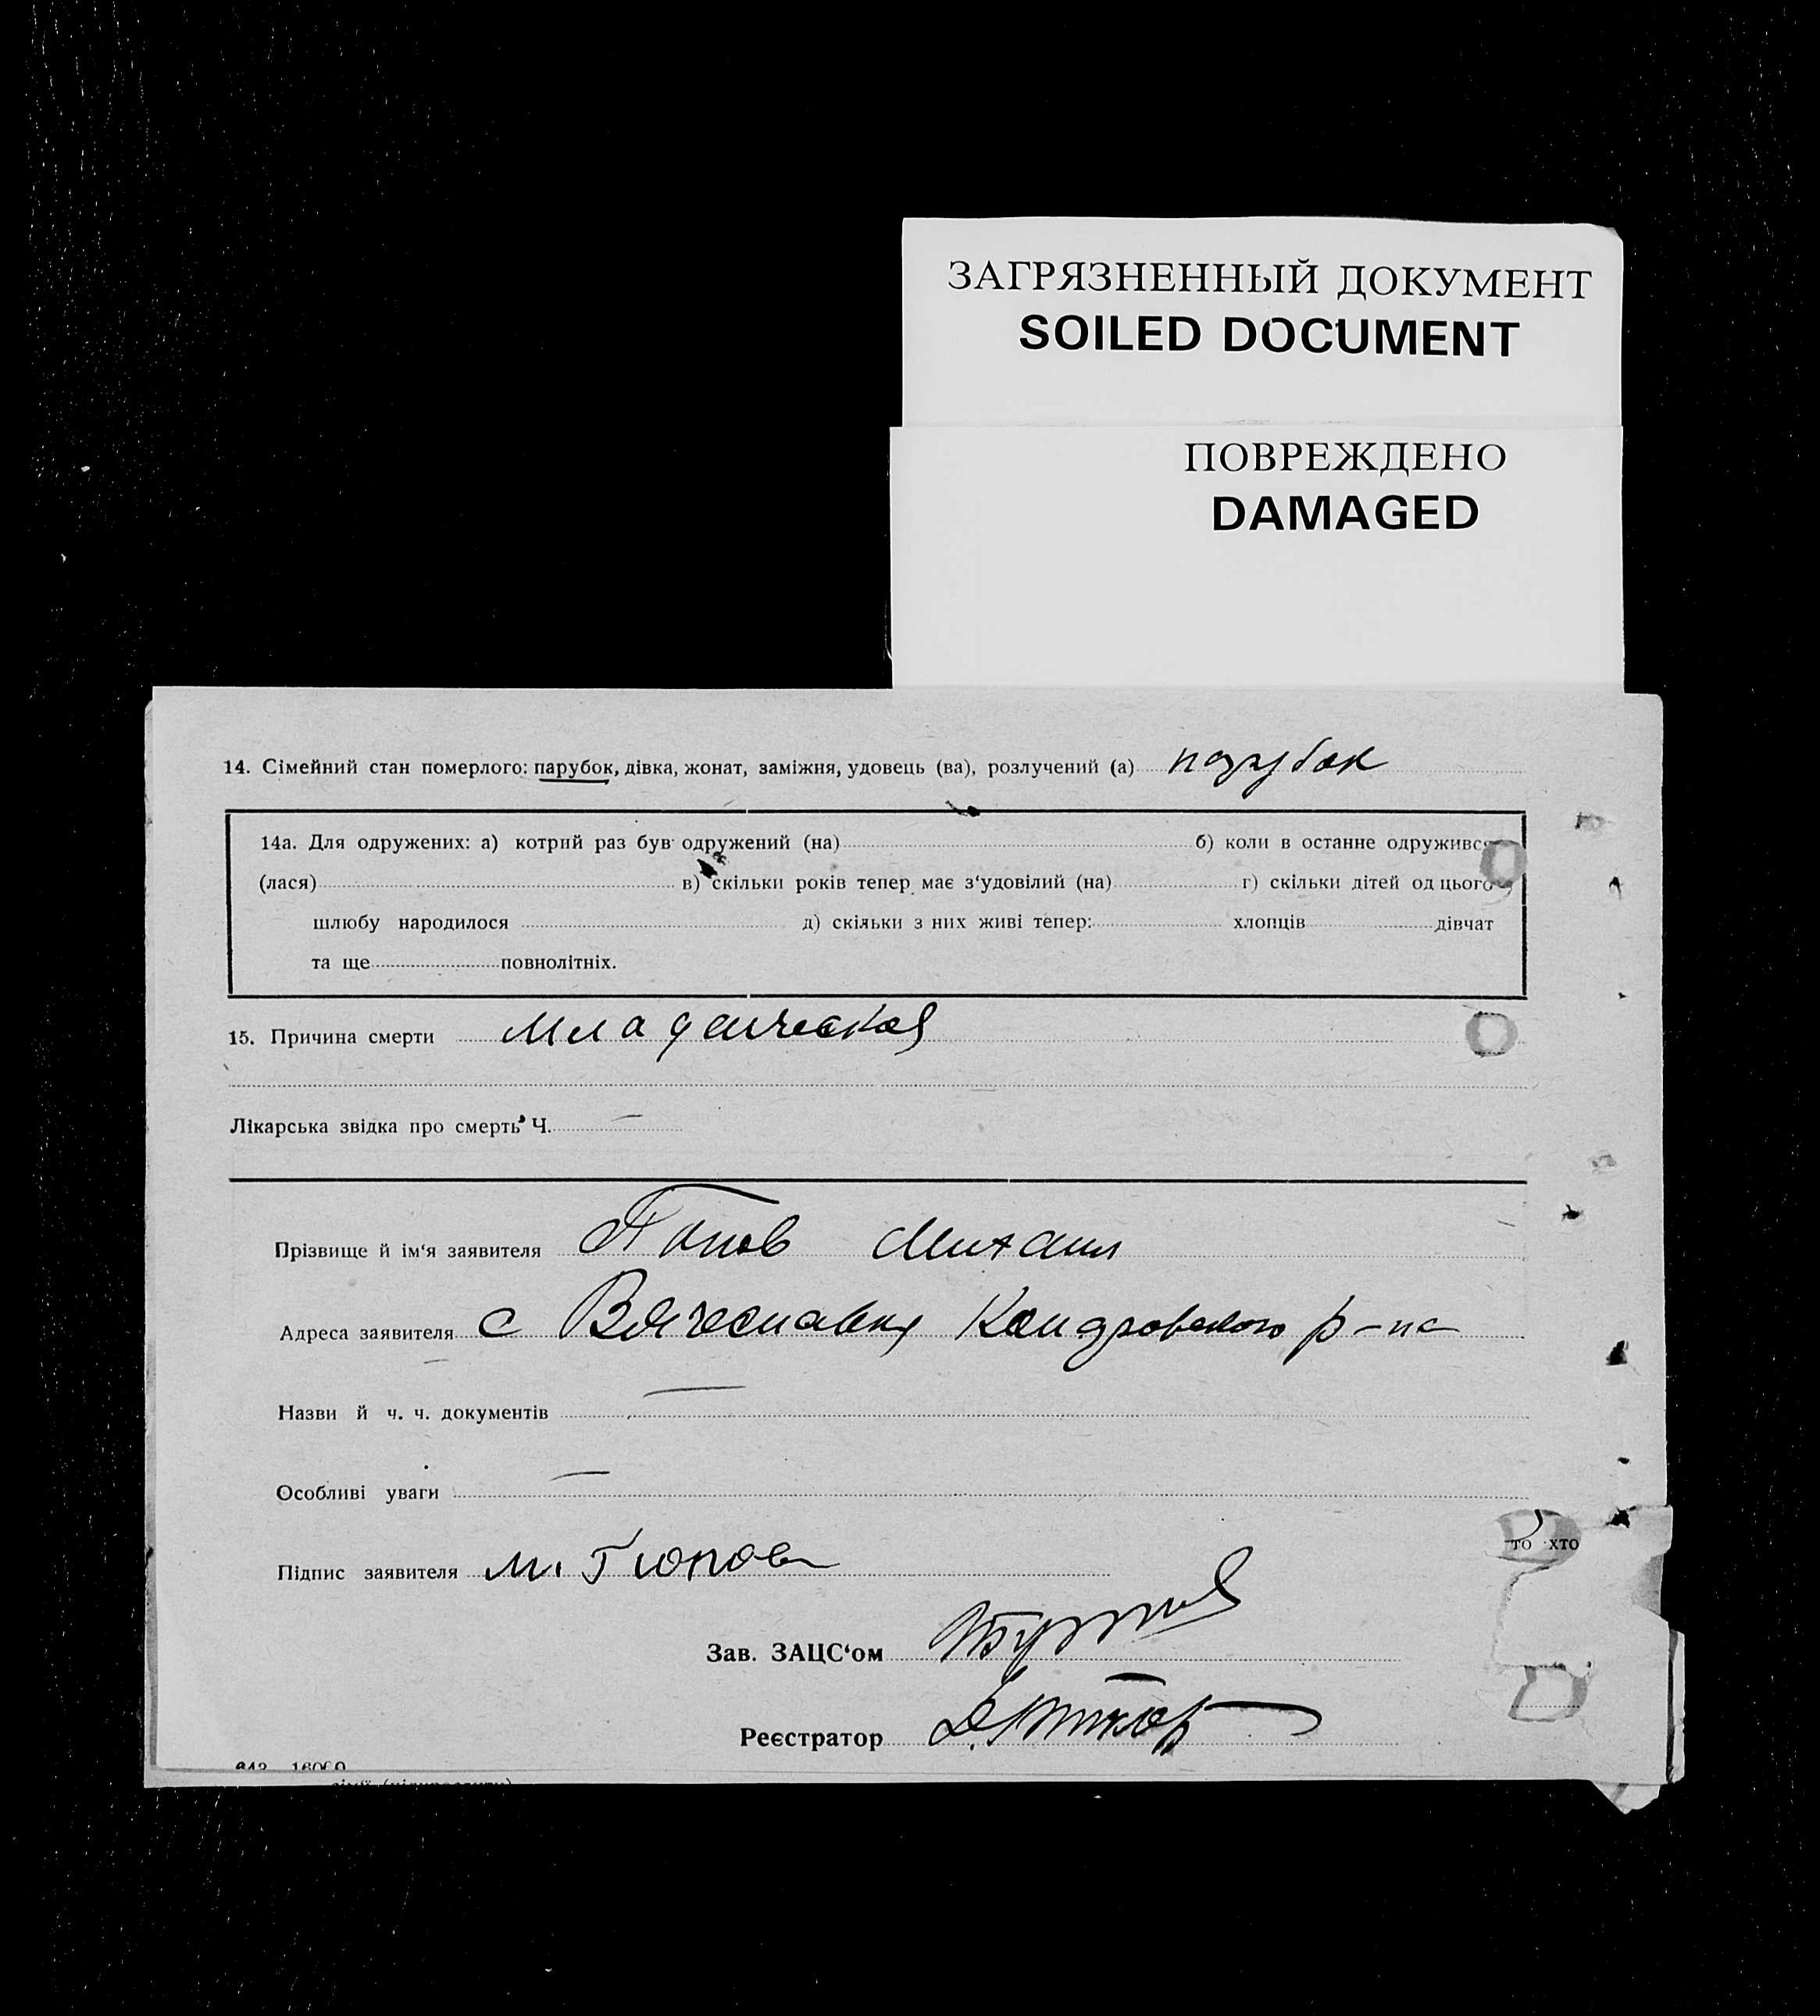 ЗАГРЯЗНЕННЫЙ ДОКУМЕНТ
SOILED DOCUMENT
ПОВРЕЖДЕНО
DAMAGED
14. Сімейний стан померлого: парубок, дівка, жонат, заміжня, удовець (ва), розлучений (а) парубок
14а. Для одружених: а) котрий раз був одружений (на) б) коли в останне одружився
(лася) в) скільки років тепер має з‘удовілий (на) г) скільки дітей од цього
шлюбу народилося д) скільки з них живі тепер: хлопців дівчат
та ще повнолітніх.
15. Причина смерти Младенческая
Лікарська звідка про смерть Ч. —
Прізвище й ім‘я заявителя Попов Михаил
Адреса заявителя с Вячеславка Р-на
Назви й ч. ч. документів —
Особливі уваги —
то хто
Підпис заявителя М.
Зав. ЗАЦС‘ом
Реєстратор